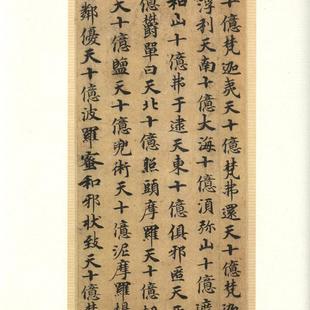 十億梵迦夷天十億梵弗還天十億梵迦
浮利天南十億大海十億湏弥山十億
和山十億弗于逮天東十億俱耶匿天
億欝單曰天北十億照頭摩羅天十億
大天十億鹽天十億兜術天十億泥摩羅
鄰優天十億波羅蜜和邪状致天十億梵